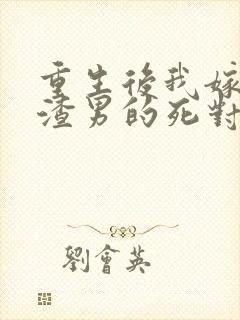 重生後我嫁
渣男的死對
劉會英